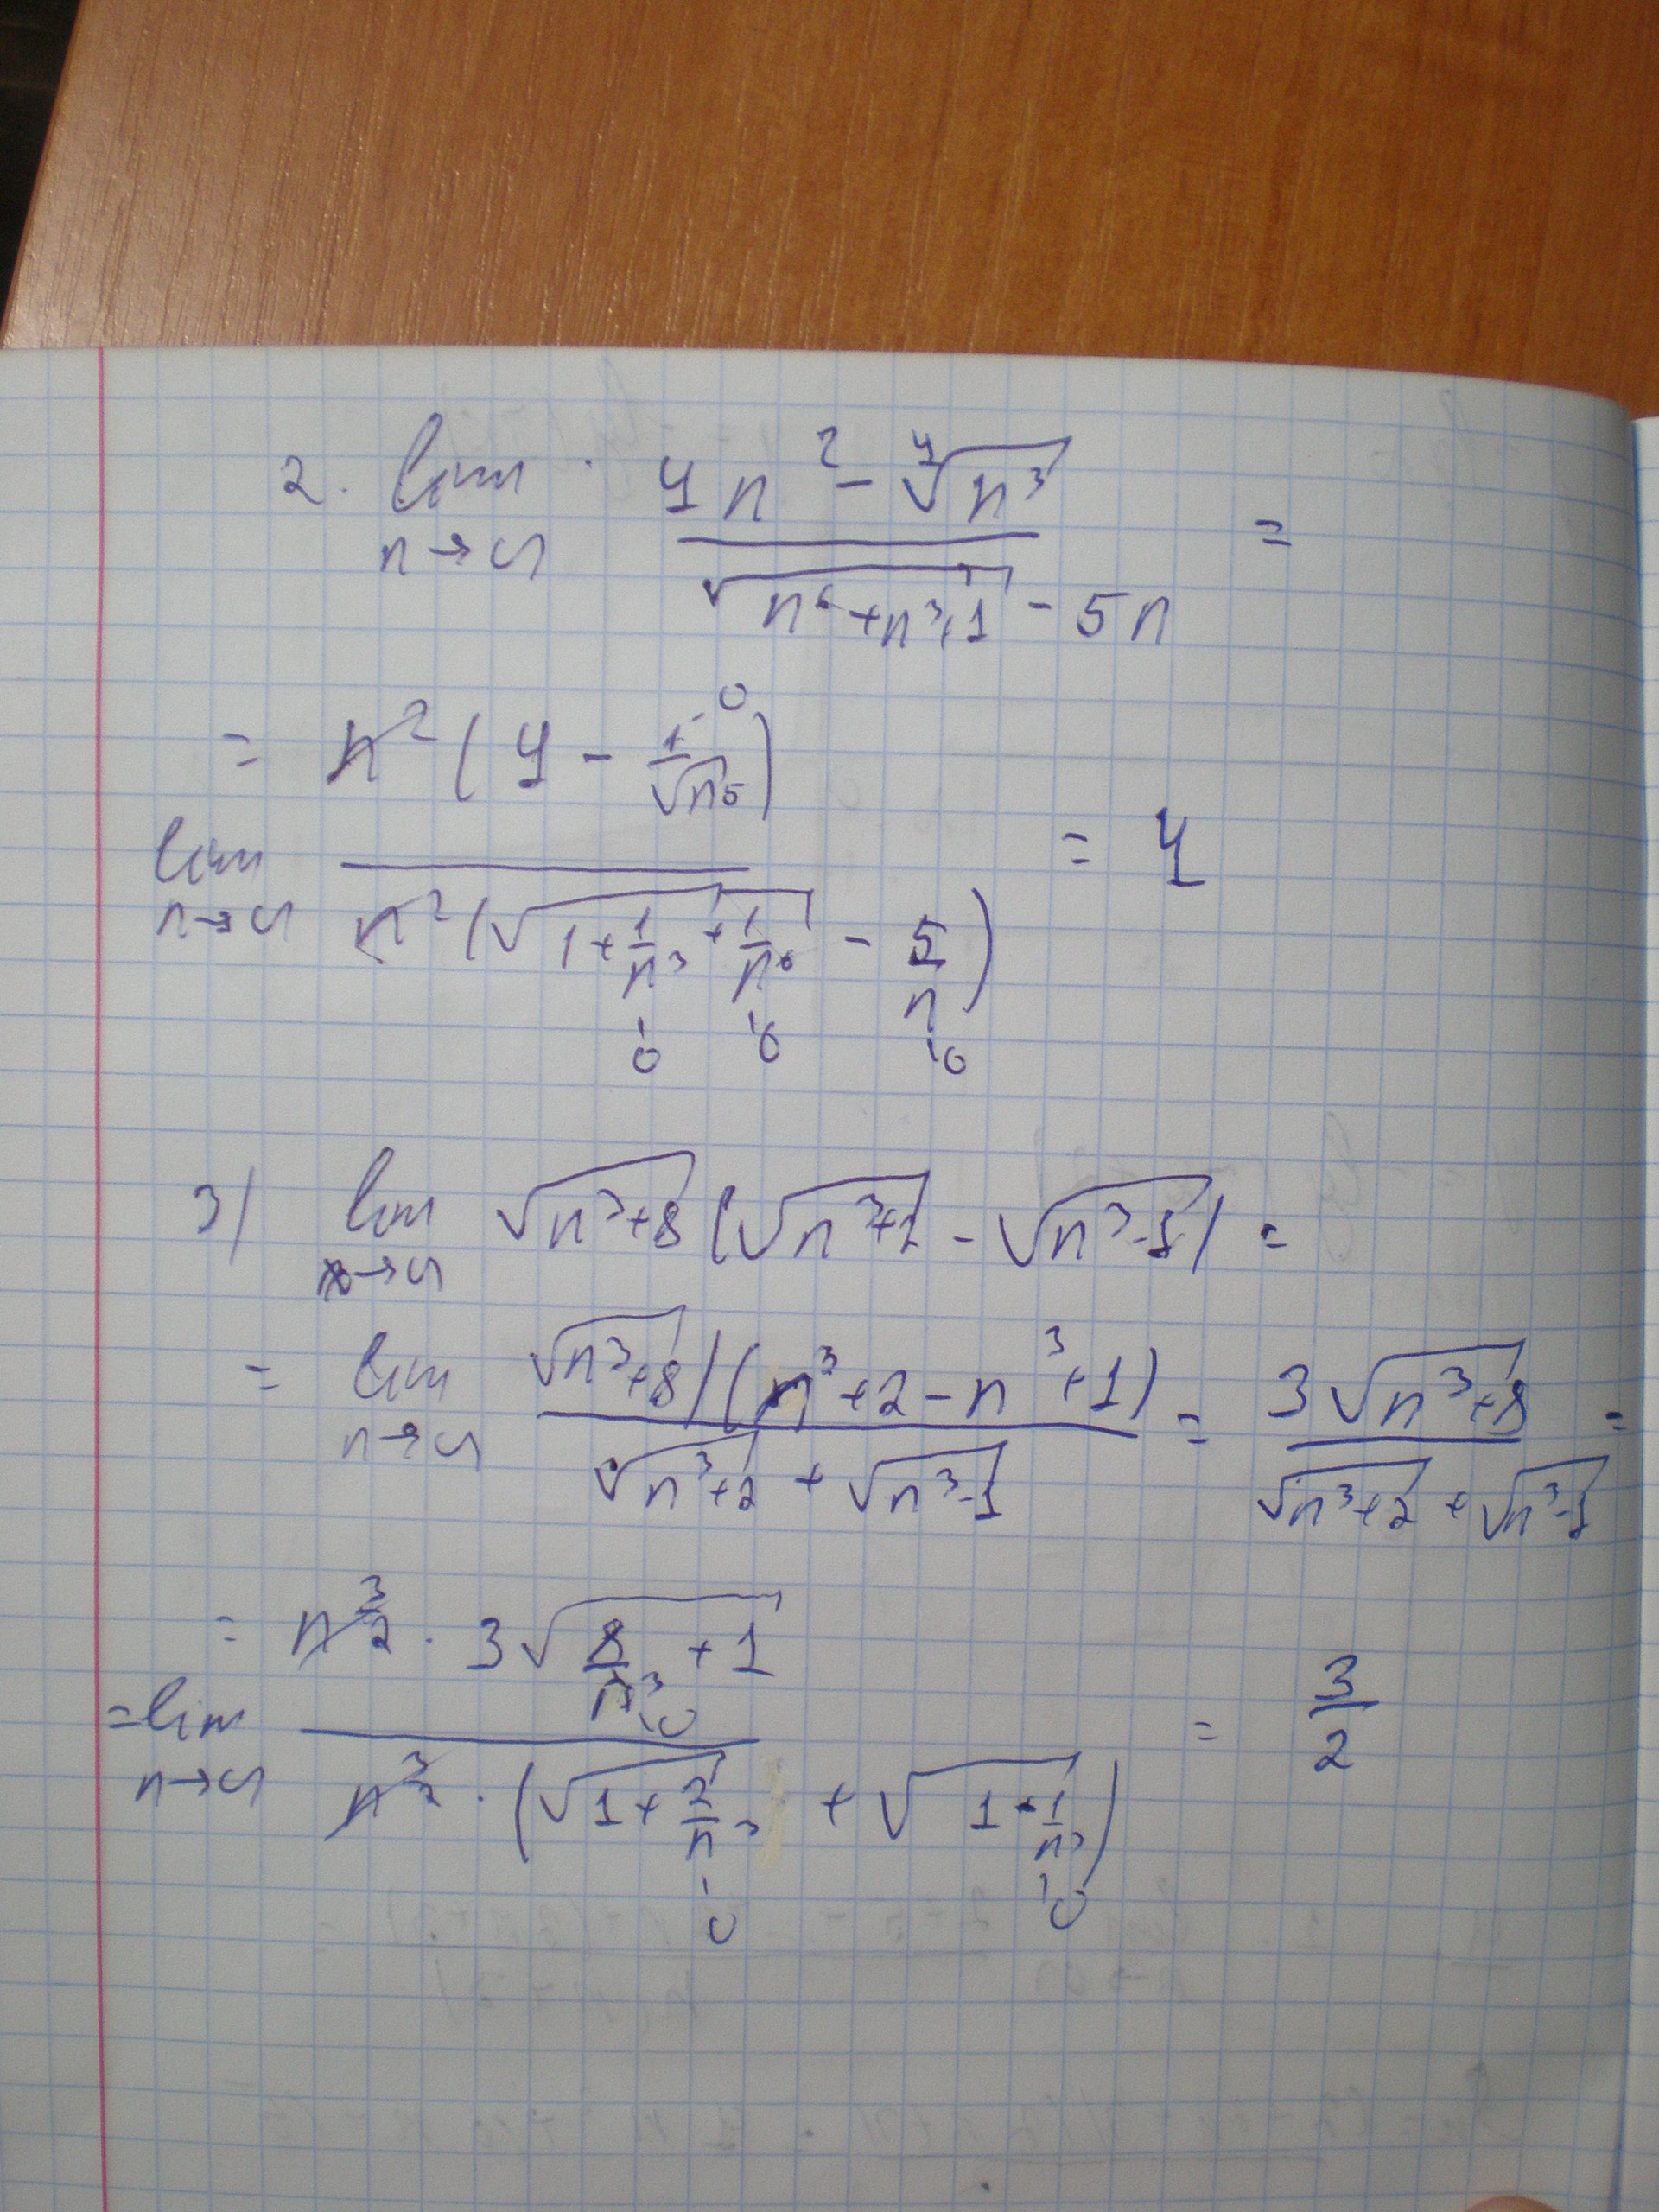 2. lim 4n² - ⁴√(n³) / (√(n⁶+n³+1) - 5n) =
n→∞
= lim n²(4 - 1/√n⁵ →0) / n²(√(1 + 1/n³ + 1/n⁶) - 5/n) = 4
n→∞
0 0 0
3) lim √(n³+8) (√(n³+2) - √(n³-1)) =
n→∞
= lim √(n³+8) (n³+2-n³+1) / (√(n³+2) + √(n³-1)) = 3√(n³+8) / (√(n³+2) + √(n³-1)) =
n→∞
= lim n^(3/2) · 3√(8/n³ + 1) / n^(3/2) · (√(1 + 2/n³) + √(1 - 1/n³)) = 3/2
n→∞
0 0